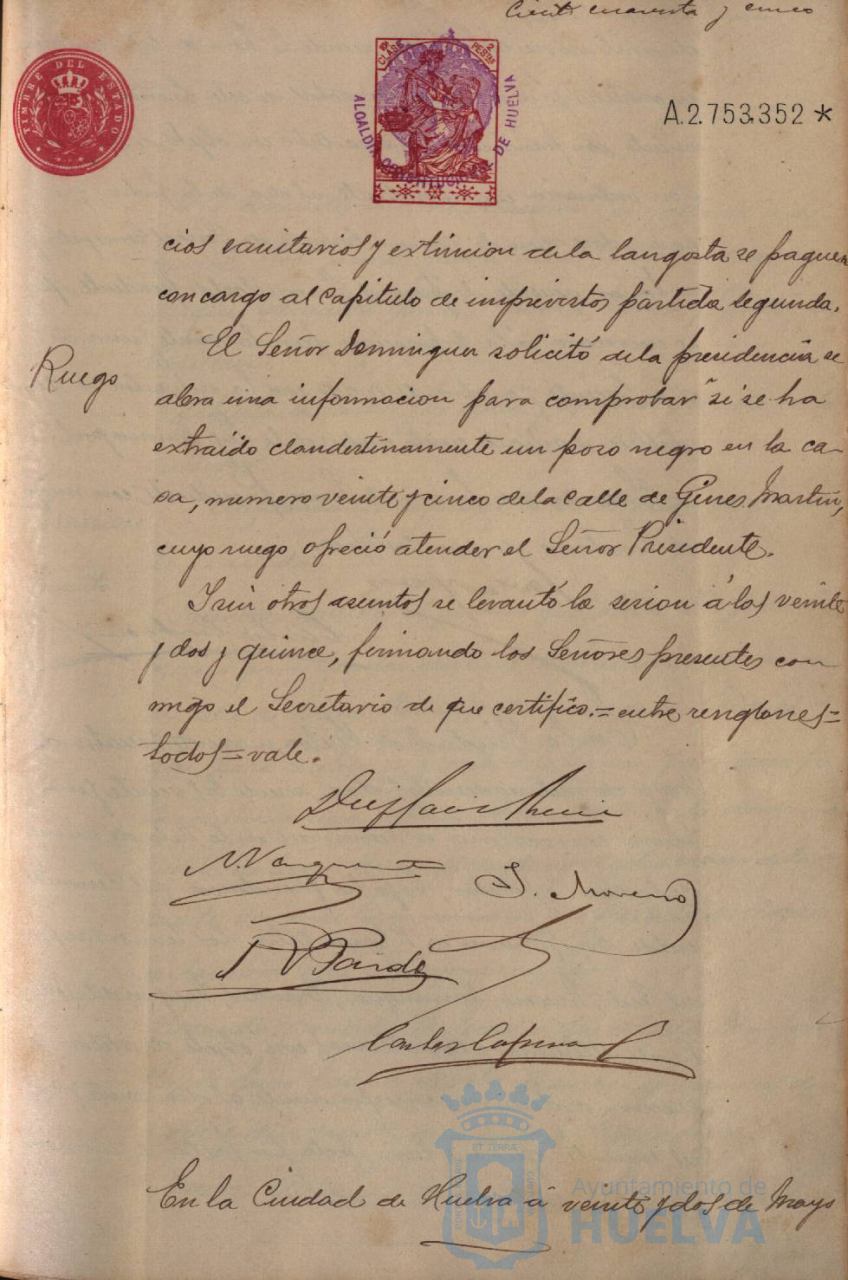 Ciento cuarenta y cinco
TIMBRE DEL ESTADO
CLASE 2 PESETAS
ALCALDIA CONSTITUCIONAL DE HUELVA
A.2.753.352 *
cios sanitarios y extincion de la langosta se paguen
con cargo al capitulo de imprevistos partida segunda.
Ruego
El Señor Dominguez solicitó de la presidencia se
abra una informacion para comprobar si se ha
extraído clandestinamente un pozo negro en la ca-
sa, numero veinte y cinco de la calle de Gines Martin,
cuyo ruego ofreció atender el Señor Presidente.
Y sin otros asuntos se levantó la sesion á las veinte
y dos y quince, firmando los Señores presentes con
migo el Secretario de que certifico.=entre renglones=
todos=vale.
J. Moreno
En la Ciudad de Huelva á veinte y dos de Mayo
Ayuntamiento de
HUELVA